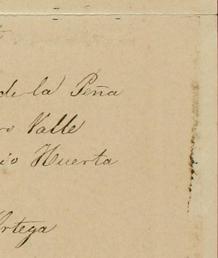 de la Peña
ro Valle
io Huerta
Ortega